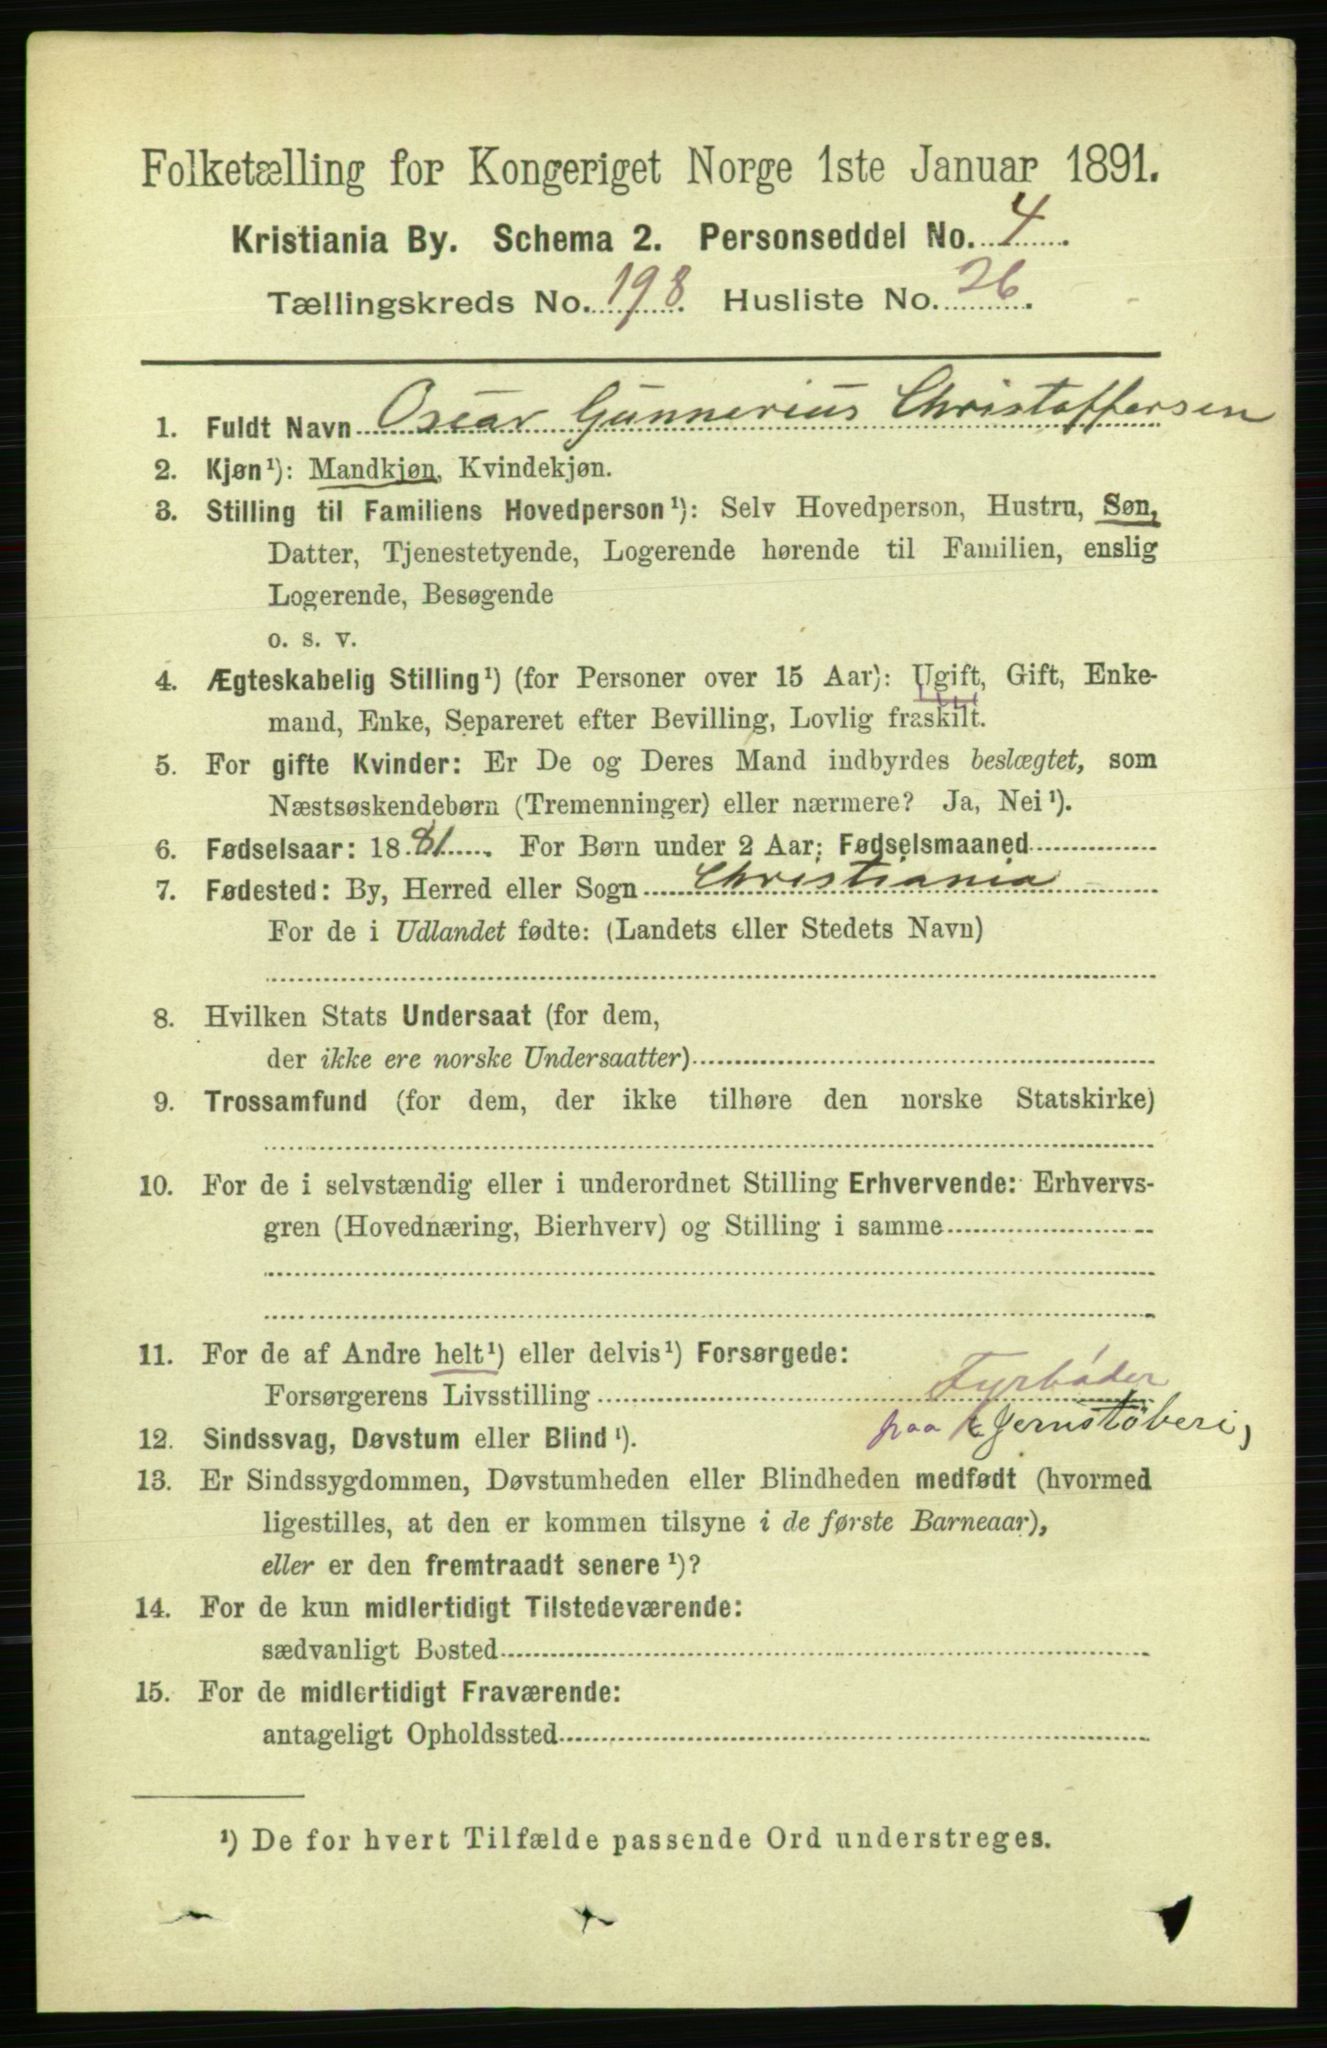 Folketælling for Kongeriget Norge 1ste Januar 1891.
Kristiania By. Schema 2. Personseddel No. 4.
Tællingskreds No. 198. Husliste No. 26.
1. Fuldt Navn Oscar Gunnerius Christoffersen
2. Kjøn¹): Mandkjøn, Kvindekjøn.
3. Stilling til Familiens Hovedperson¹): Selv Hovedperson, Hustru, Søn,
Datter, Tjenestetyende, Logerende hørende til Familien, enslig
Logerende, Besøgende
o. s. v.
4. Ægteskabelig Stilling¹) (for Personer over 15 Aar): Ugift, Gift, Enke-
mand, Enke, Separeret efter Bevilling, Lovlig fraskilt.
5. For gifte Kvinder: Er De og Deres Mand indbyrdes beslægtet, som
Næstsøskendebørn (Tremenninger) eller nærmere? Ja, Nei¹).
6. Fødselsaar: 1881. For Børn under 2 Aar: Fødselsmaaned
7. Fødested: By, Herred eller Sogn Christiania
For de i Udlandet fødte: (Landets eller Stedets Navn)
8. Hvilken Stats Undersaat (for dem,
der ikke ere norske Undersaatter)
9. Trossamfund (for dem, der ikke tilhøre den norske Statskirke)
10. For de i selvstændig eller i underordnet Stilling Erhvervende: Erhvervs-
gren (Hovednæring, Bierhverv) og Stilling i samme
11. For de af Andre helt¹) eller delvis¹) Forsørgede:
Forsørgerens Livsstilling Fyrbøder
paa Jernstøberi,
12. Sindssvag, Døvstum eller Blind¹).
13. Er Sindssygdommen, Døvstumheden eller Blindheden medfødt (hvormed
ligestilles, at den er kommen tilsyne i de første Barneaar),
eller er den fremtraadt senere¹)?
14. For de kun midlertidigt Tilstedeværende:
sædvanligt Bosted
15. For de midlertidigt Fraværende:
antageligt Opholdssted
¹) De for hvert Tilfælde passende Ord understreges.